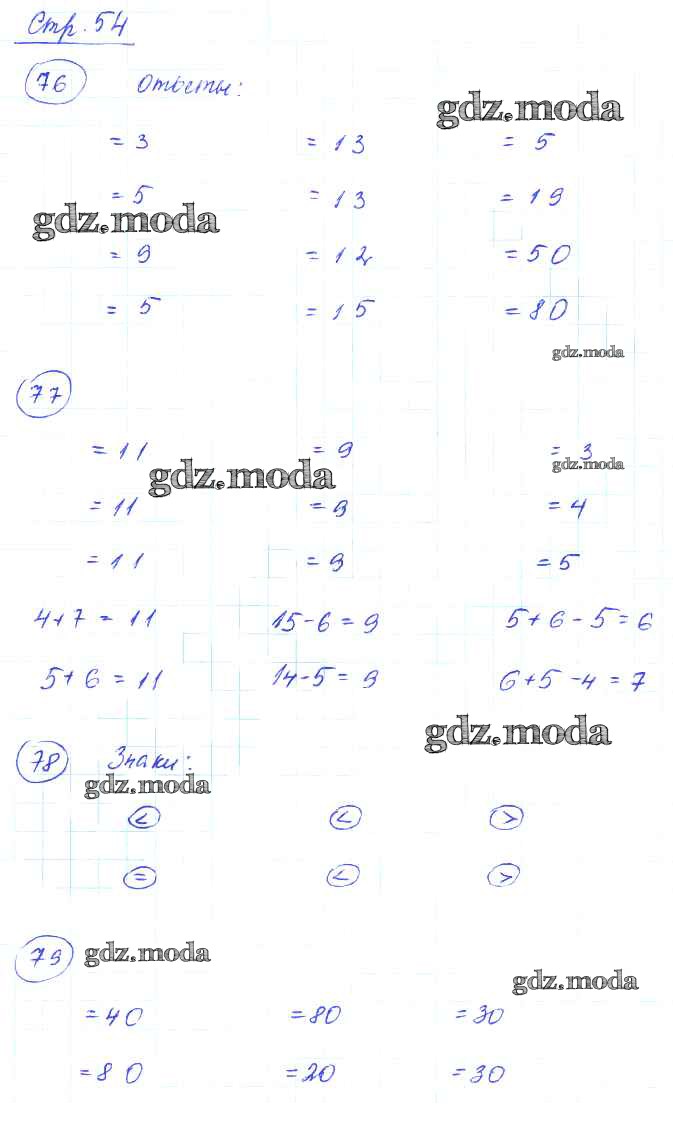 Стр. 54
76 Ответы:
gdz.moda
= 3 = 13 = 5
= 5 = 13 = 19
gdz.moda
= 9 = 12 = 50
= 5 = 15 = 80
gdz.moda
77
= 11 = 9 = 3
gdz.moda gdz.moda
= 11 = 9 = 4
= 11 = 9 = 5
4+7 = 11 15-6 = 9 5+6-5=6
5+6 = 11 14-5 = 9 6+5-4=7
gdz.moda
78 Знаки:
gdz.moda
< < >
= < >
79 gdz.moda
gdz.moda
= 40 = 80 = 30
= 80 = 20 = 30